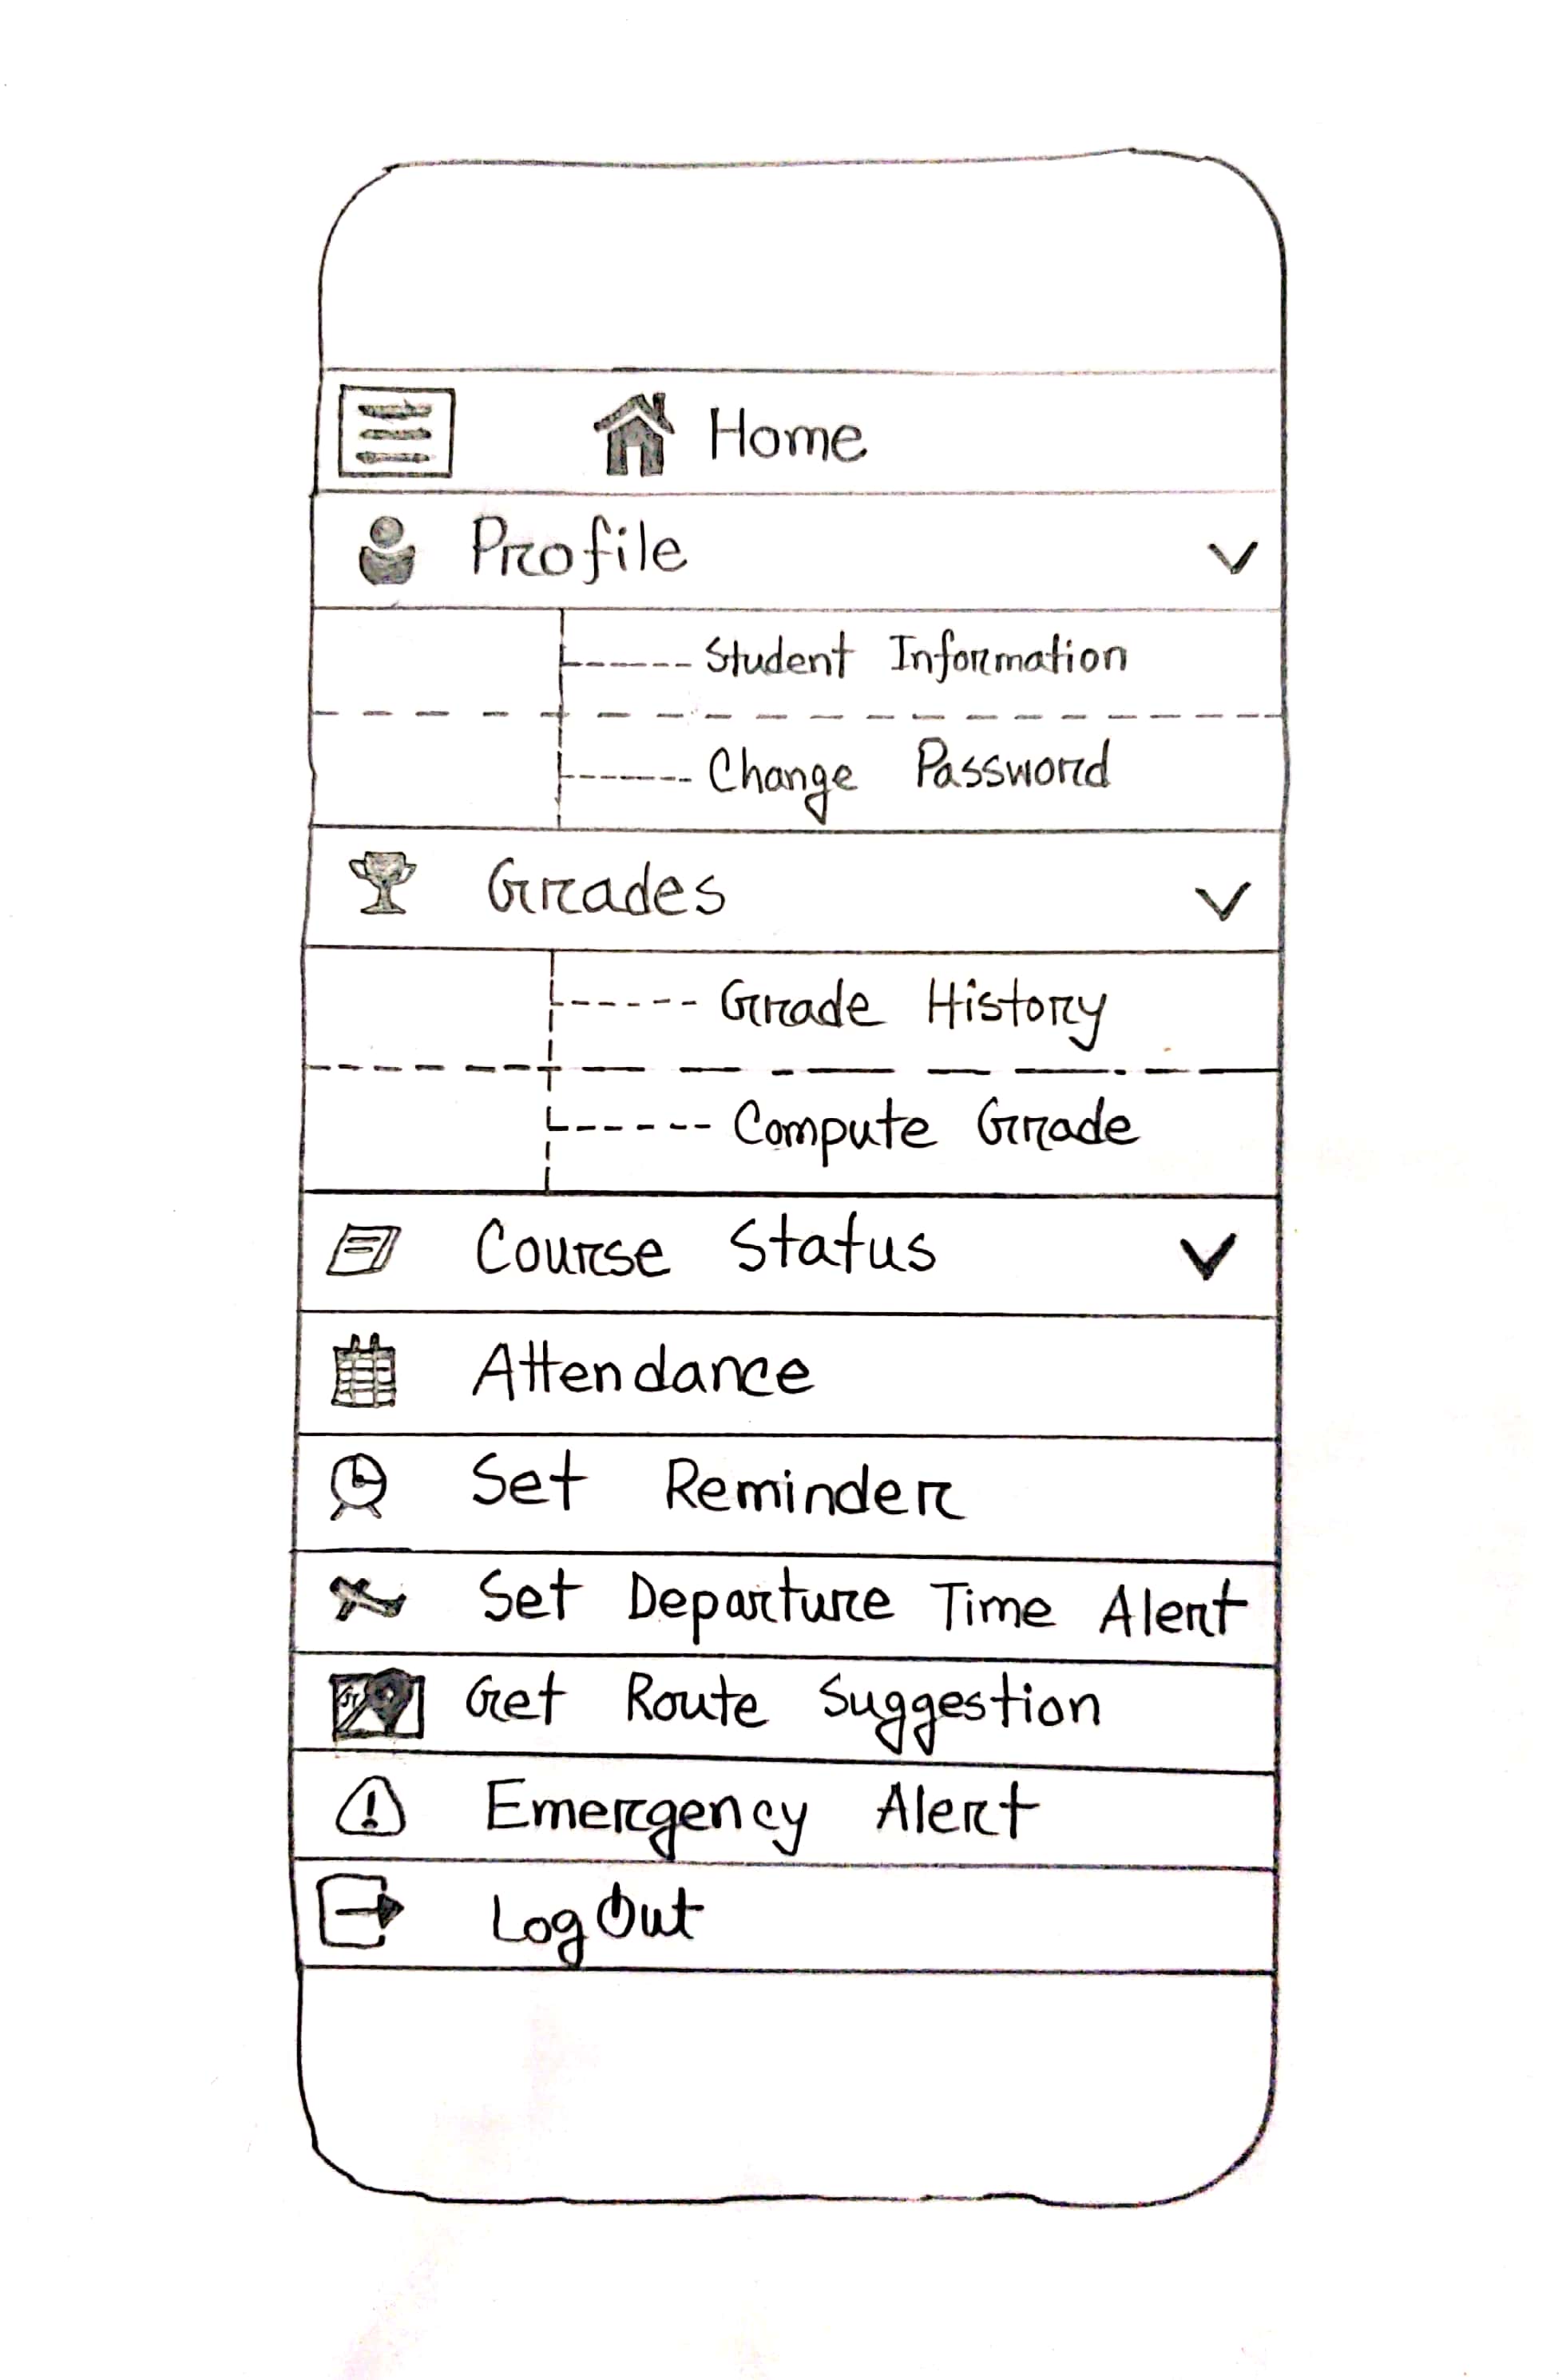 Home
Profile
Student Information
Change Password
Grades
Grade History
Compute Grade
Course Status
Attendance
Set Reminder
Set Departure Time Alert
Get Route Suggestion
Emergency Alert
Log Out